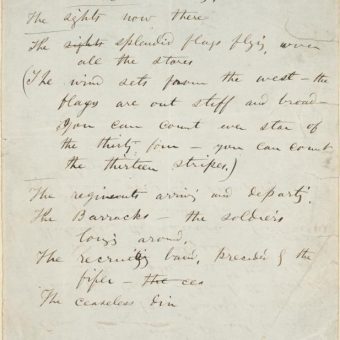 The sights now there
The sights splendid flags flyi'g, over
all the stores
(The wind sets from the west – the
flags are out stiff and broad –
you can count ever star of
the thirty four – you can count
the thirteen stripes,)
The regiments arrivi'g and departi'g,
The Barracks – the soldiers
loungi'g around,
The recruiti'g band, preceded by the
fifer – the cea
The ceaseless din